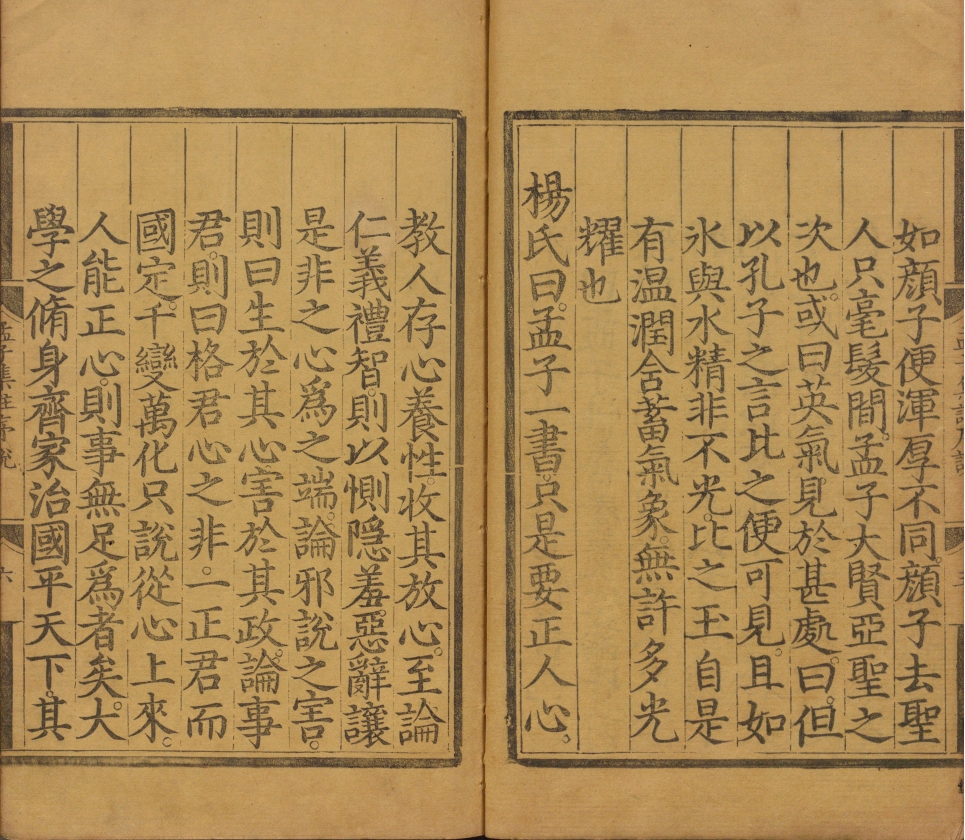 如顔子便渾厚不同。顔子去聖
人只毫髮間。孟子大賢亞聖之
次也。或曰英氣見於甚處。曰。但
以孔子之言比之便可見。且如
氷與水精非不光。比之玉自是
有温潤含蓄氣象。無許多光
耀也
楊氏曰。孟子一書。只是要正人心。
教人存心養性。收其放心。至論
仁義禮智。則以惻隠羞惡辭讓
是非之心爲之端。論邪說之害。
則曰生於其心害於其政。論事
君。則曰格君心之非。一正君而
國定。千變萬化只說從心上來。
人能正心。則事無足爲者矣。大
學之脩身齊家治國平天下。其
孟子集註序說
六